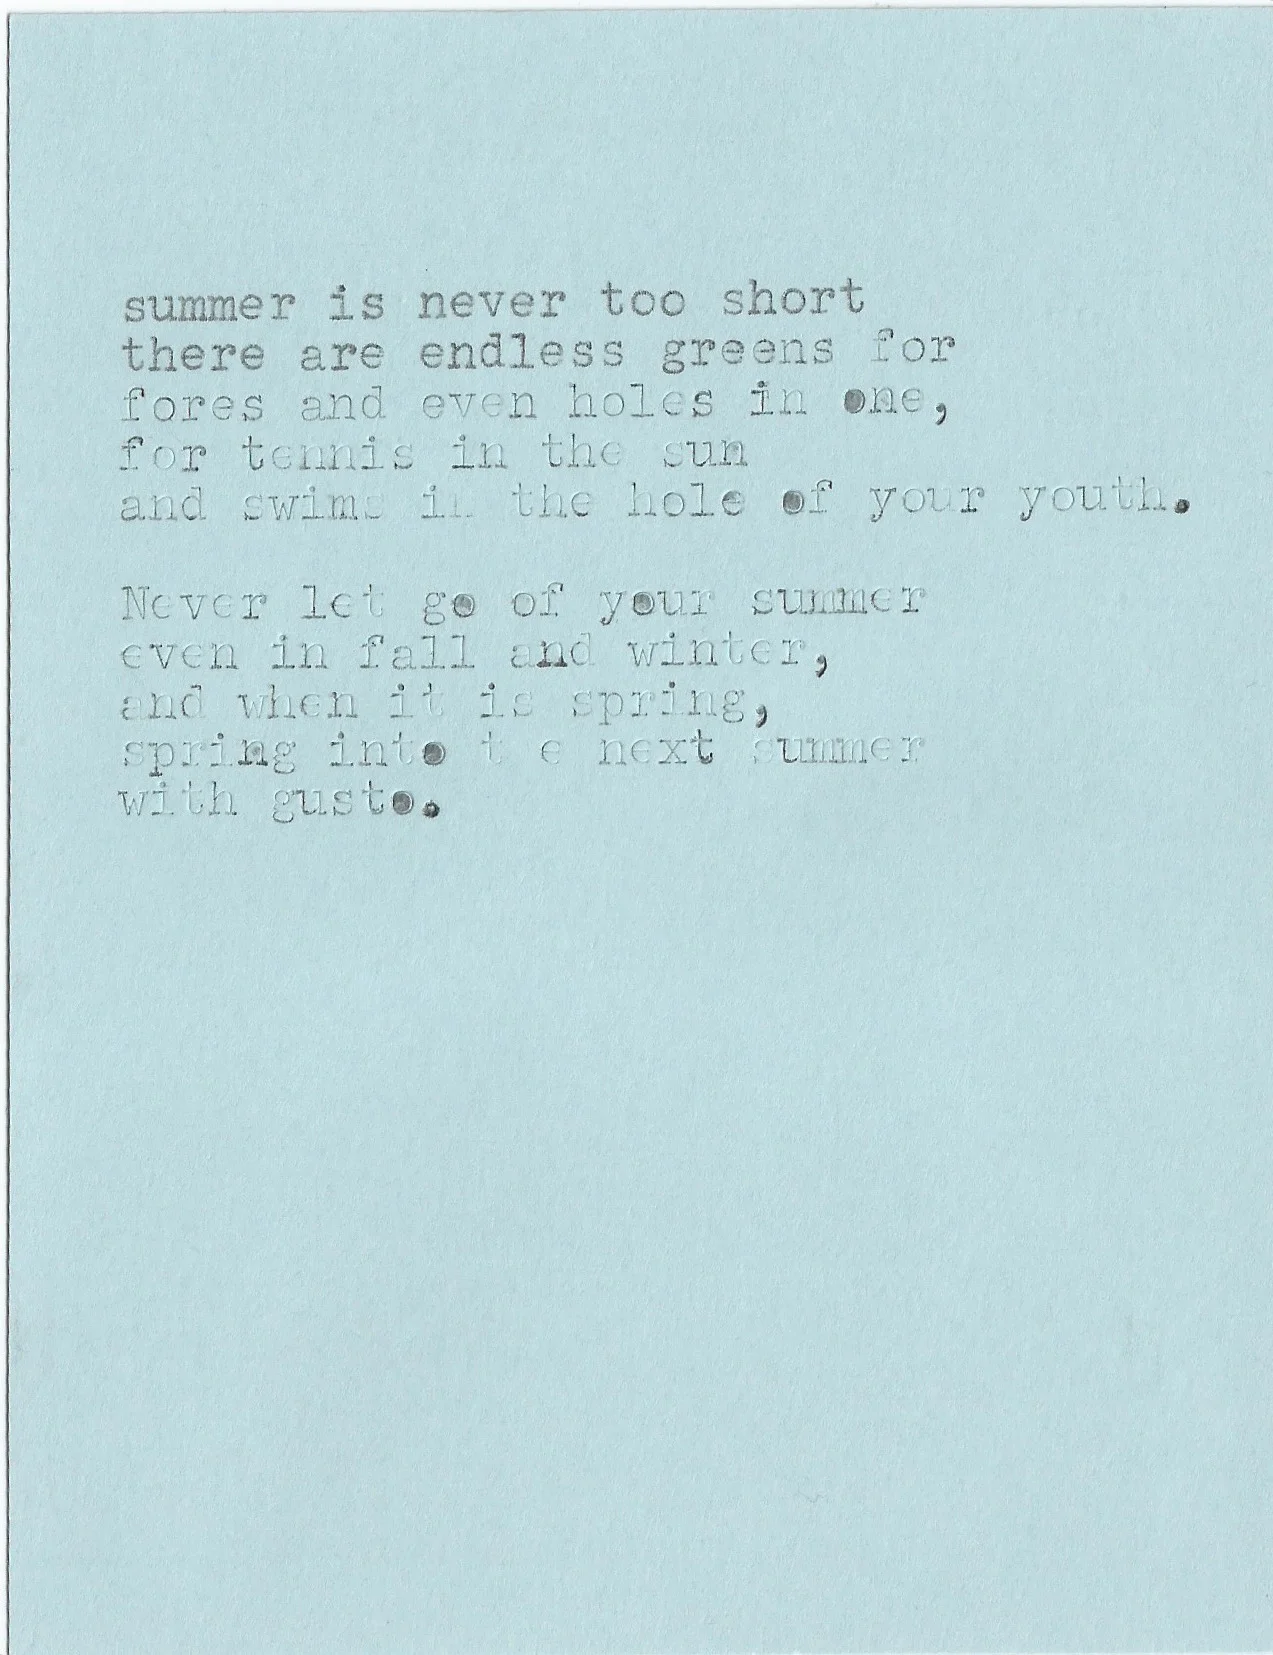 summer is never too short
there are endless greens for
fores and even holes in one,
for tennis in the sun
and swims in the hole of your youth.
Never let go of your summer
even in fall and winter,
and when it is spring,
spring into t e next summer
with gusto.